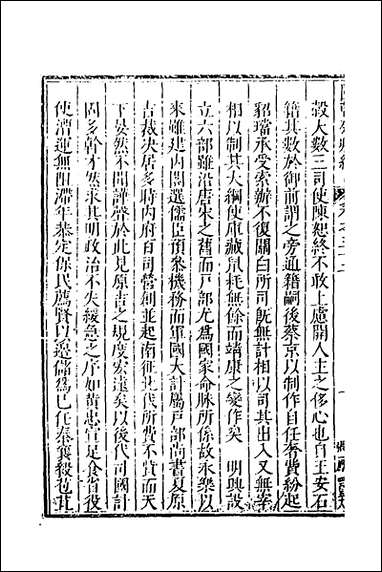 穀大數三司使陳恕終不敢上慮開人主之侈心也自王安石
籍其數於御前謂之旁通籍嗣後蔡京以制作自任奢費紛起
貂璫承受索辦不復關白所司旣無計相以司其出入又無案
相以制其大綱使庫藏氣耗無餘而靖康之變作矣 明興設
立六部雖沿唐宋之舊而戸部尤爲國家命脉所係故永樂以
來雖建内閣選儒臣預參機務而軍國大計屬戸部尚書夏原
吉裁決居多時内府百司營創並起南征北伐所費不貲而天
下晏然不聞謗聲於此見原吉之規度宏遠矣以後代司國計
固多幹才然求其明政治不失緩急之序如黄忠宣足食省役
使漕運無阻滯年恭定保民薦賢以邊儲爲己任秦襄毅包茸